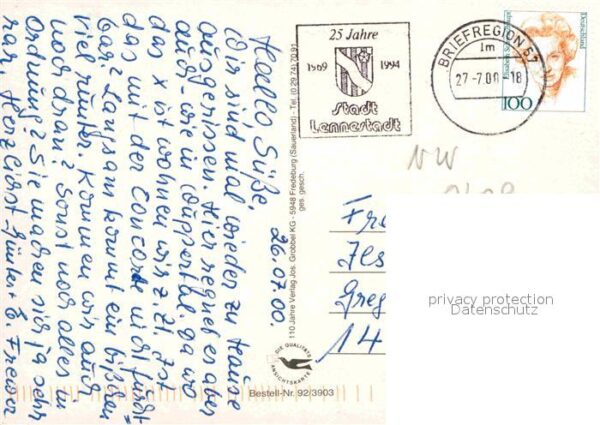 Hallo, Süße, 26.07.00.
Wir sind mal wieder zu Hause
ausgerissen. Hier regnet es aber
auch wie in Wuppertal, ga wo
das x ist wohnen wir z. Zt. Ist
das mit der Concorde nicht furcht-
bar? Langsam kommt ein bißchen
viel runter. Kommen wir auch
noch dran? Sonst noch alles in
Ordnung? Sie machen sich ja sehr
rar. Herzlichst Günter + E.
110 Jahre Verlag Jos. Grobbel KG - 5948 Fredeburg (Sauerland) - Tel. (0 29 74) 70 91
ges. gesch.
DIE QUALITÄTS
ANSICHTSKARTE
Bestell-Nr. 92/3903
25 Jahre
1969 1994
Stadt
Lennestadt
BRIEFREGION 57
lm
27.-7.00-18
Deutschland
100
NW
Fr
Jes
Greg
14
privacy protection
Datenschutz